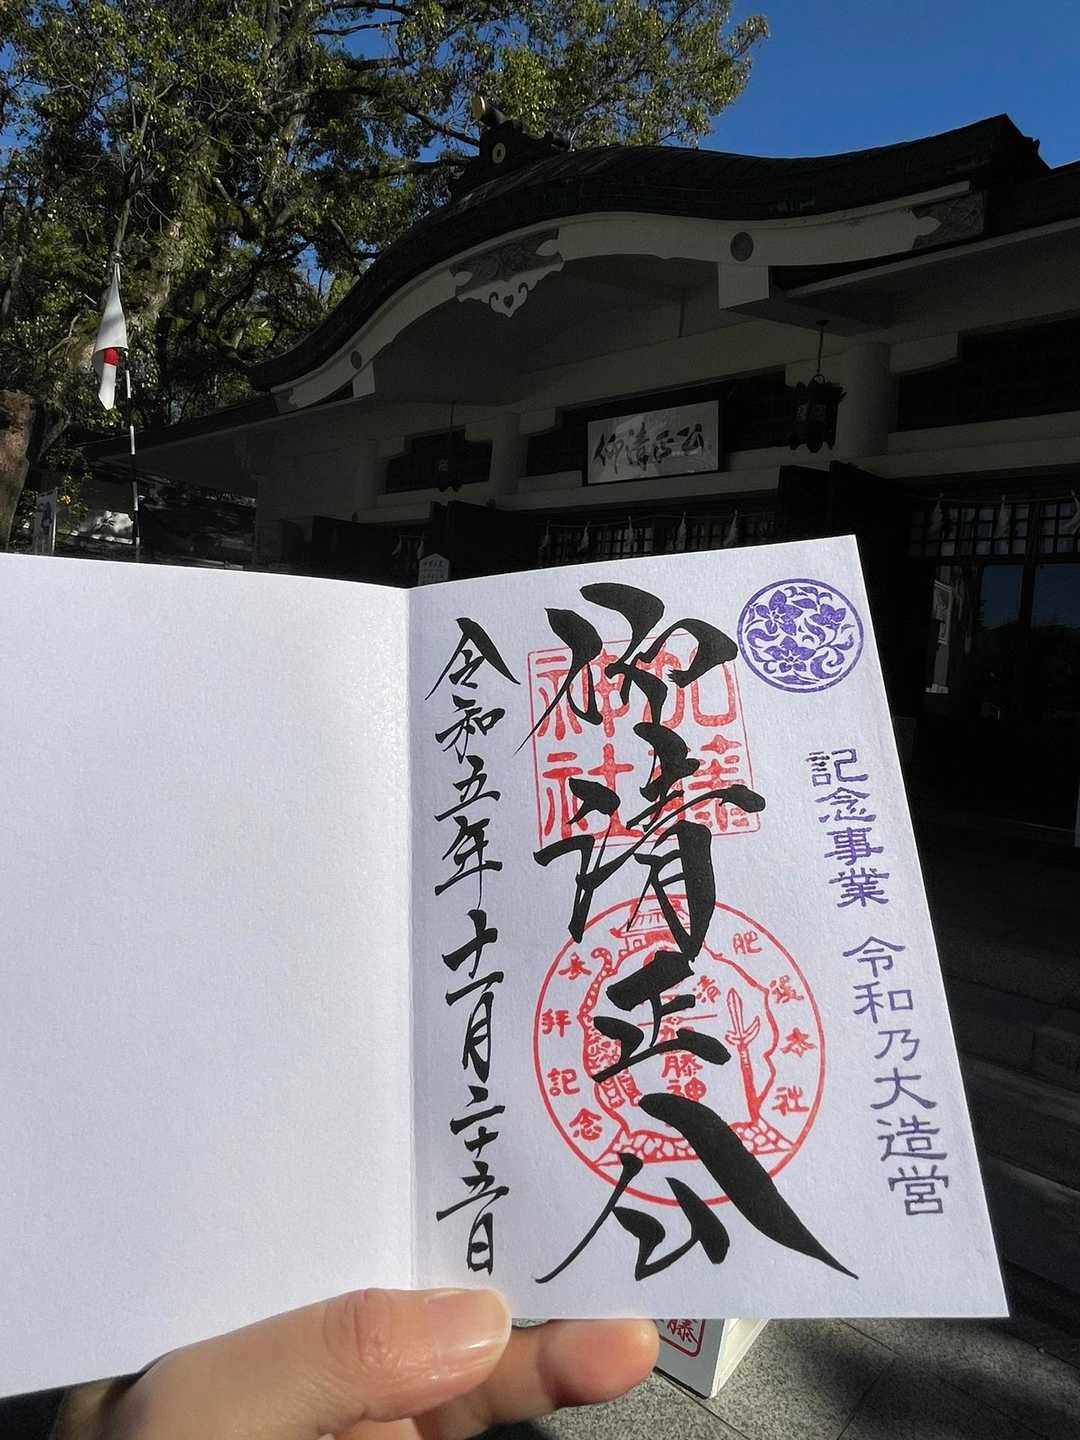 仰清正公
記念事業 令和乃大造営
仰清正公
加藤
神社
肥後本社
拝記念
藤神
令和五年十一月二十五日
藤